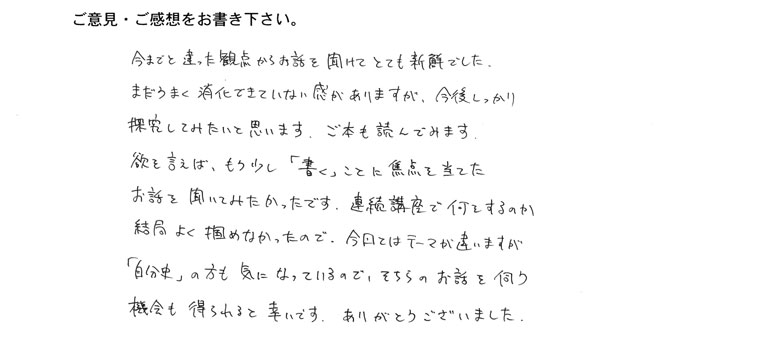 ご意見・ご感想をお書き下さい。
今までと違った観点からお話を聞けてとても新鮮でした.
まだうまく消化できていない感がありますが、今後しっかり
探究してみたいと思います. ご本も読んでみます.
欲を言えば、もう少し「書く」ことに焦点を当てた
お話を聞いてみたかったです. 連続講座で何をするのか
結局よく掴めなかったので. 今回とはテーマが違いますが
「自分史」の方も気になっているので、そちらのお話を伺う
機会も得られると幸いです. ありがとうございました.